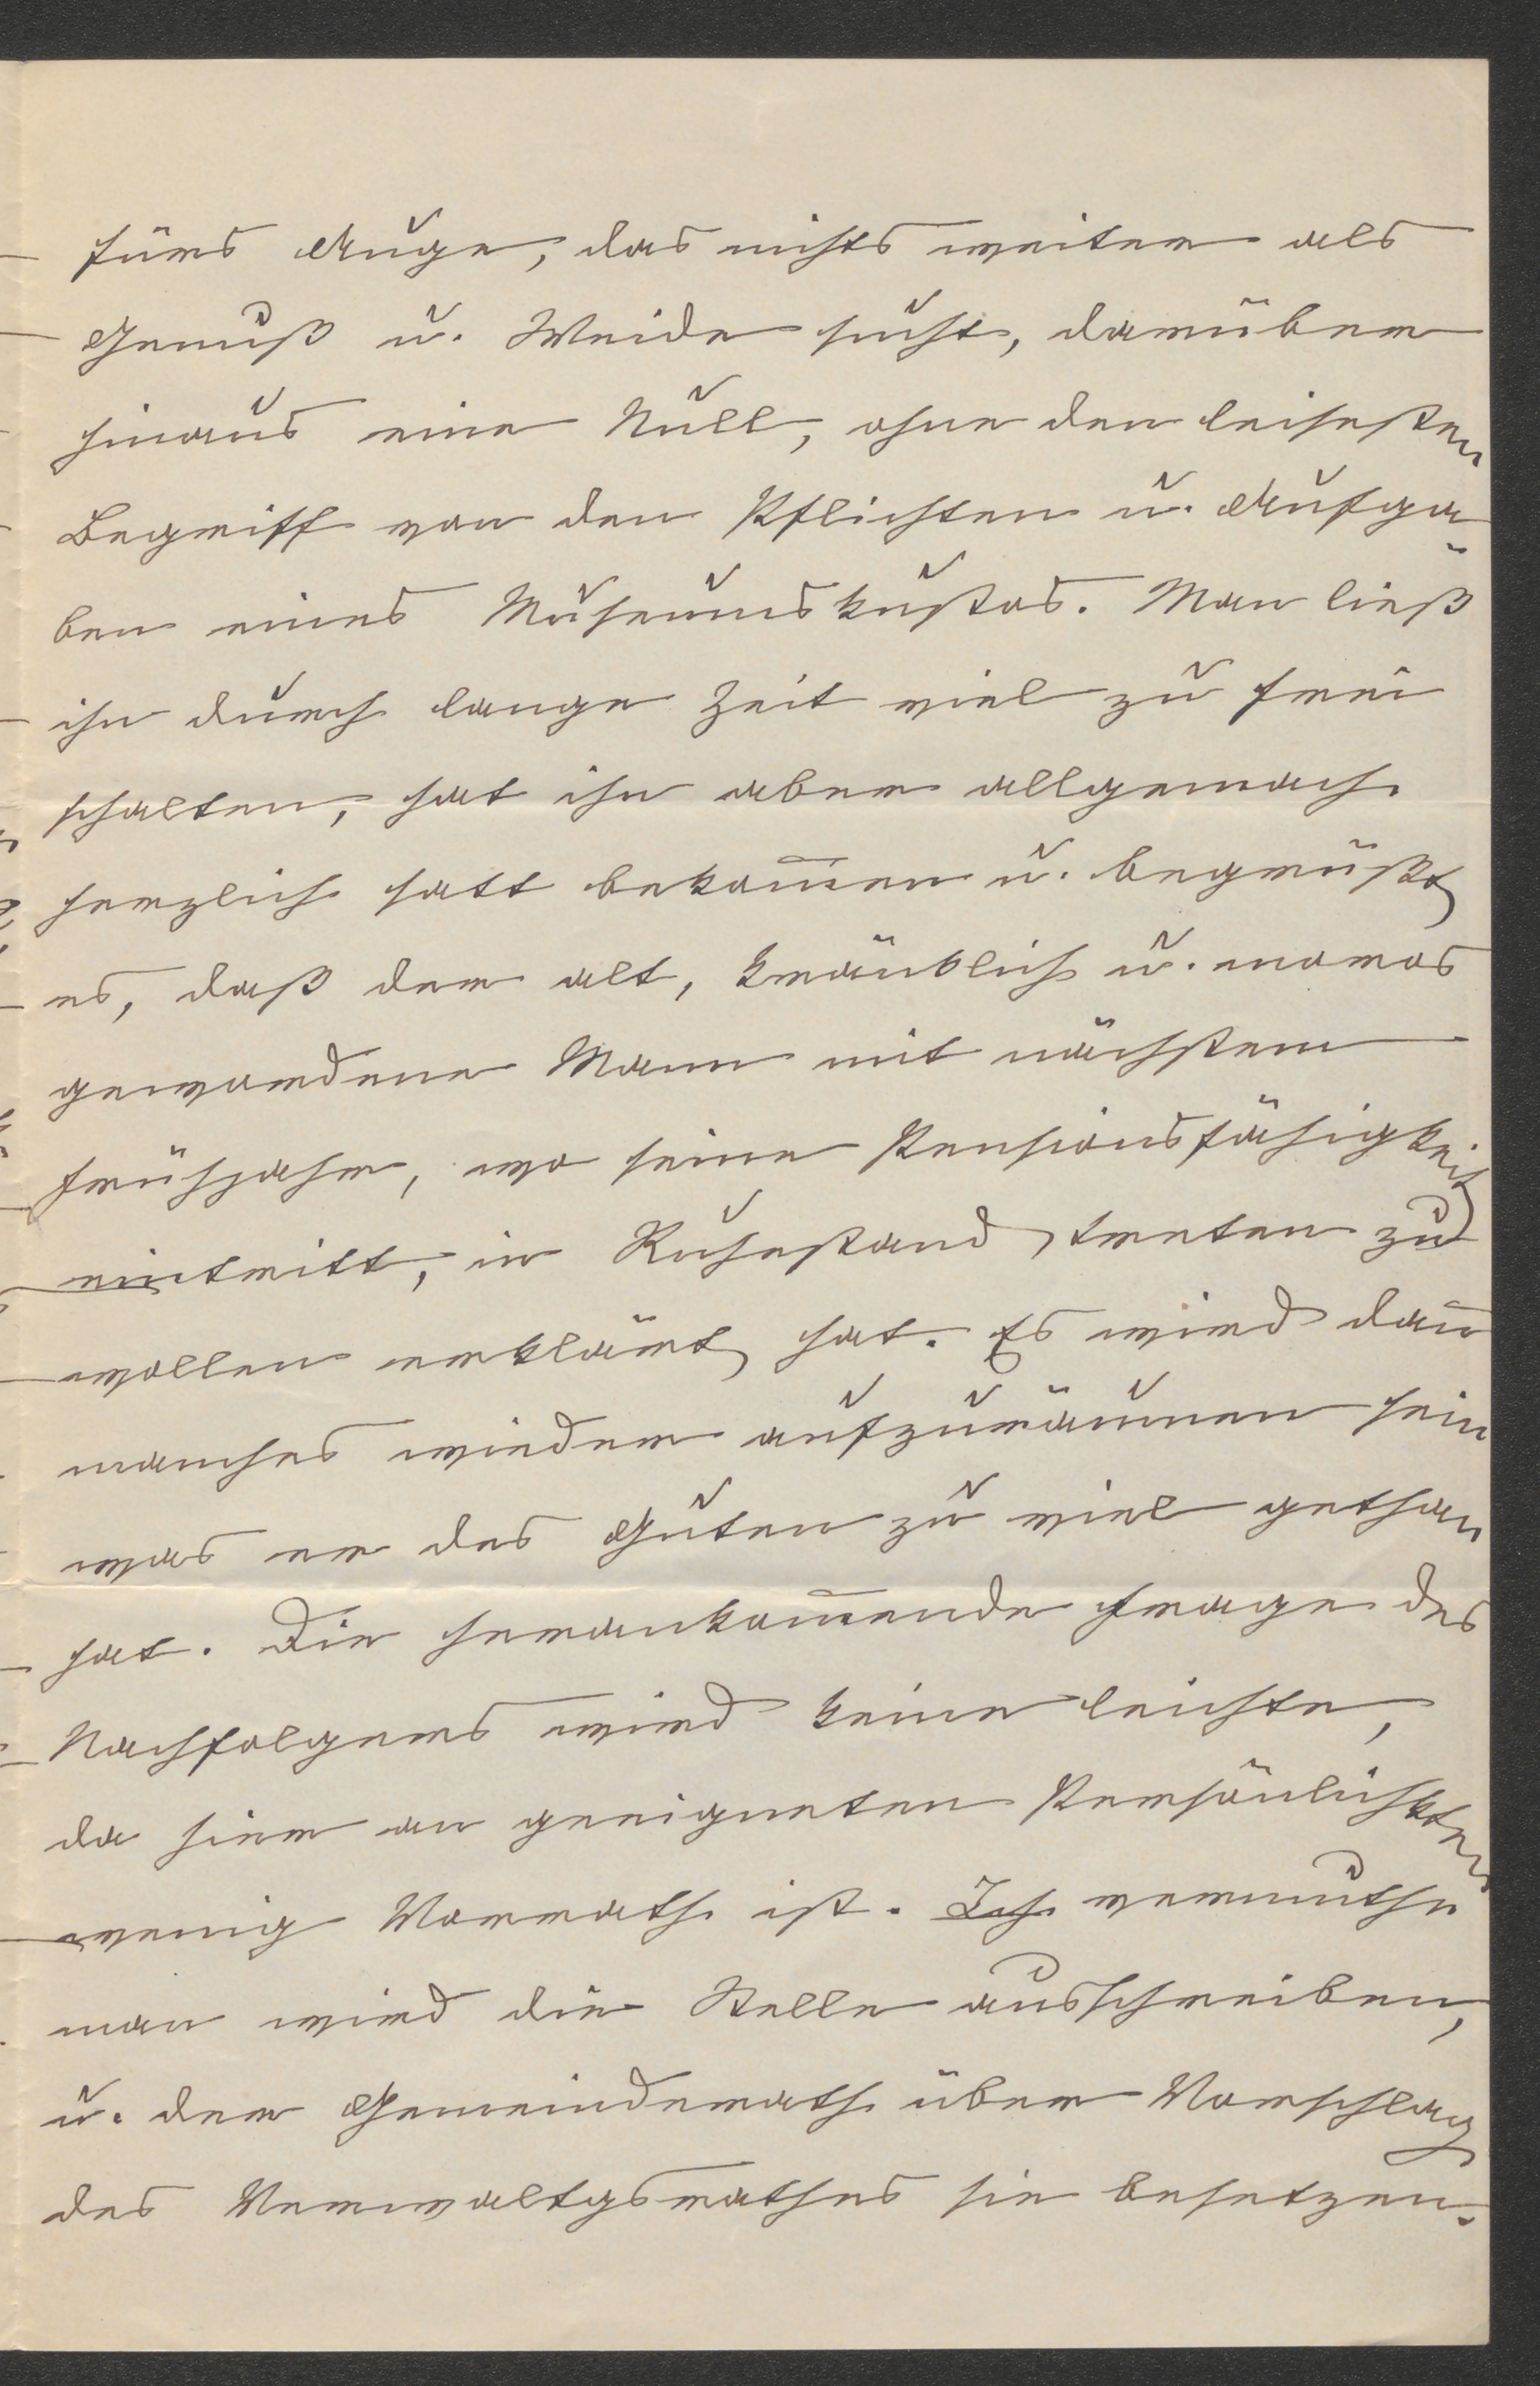 fürs Auge, das nichts weiter als
Genuß u. Weide sucht, darüber
hinaus eine Null, ohne den leisesten
Begriff von den Pflichten u. Aufga-
ben eines Museumskustos. Man ließ
ihn durch lange Zeit viel zu frei
schalten, hat ihn aber allgemach
herzlich satt bekom̄en u. begrüßt
es, daß der alt, kränklich u. moros
gewordene Mann mit nächstem
Frühjahr, wo seine Pensionsfähigkeit
eintritt, in Ruhestand treten zu
wollen erklärt hat. Es wird dan̄
manches wieder aufzuräumen sein
was er des Guten zu viel gethan
hat. Die herankom̄ende Frage des
Nachfolgers wird keine leichte,
da hier an geeigneten Persönlichkten
wenig Vorrath ist. Ich vermuthe
man wird die Stelle ausschreiben,
u. der Gemeinderath über Vorschlag
des Verwaltgsrathes sie besetzen.